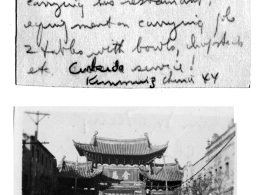 carrying his restaurant,
equipment on carrying job
2 tables with bowls, chopsticks
etc. Curbside service!
Kunming China XY